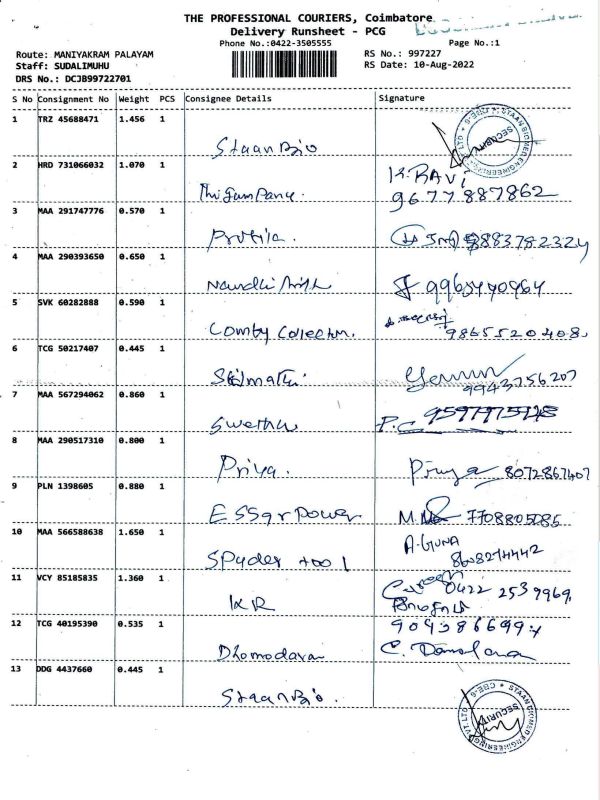 THE PROFESSIONAL COURIERS, Coimbatore
Delivery Runsheet - PCG
Phone No.:0422-3505555
Page No.:1
Route: MANIYAKRAM PALAYAM
RS No.: 997227
Staff: SUDALIMUHU
RS Date: 10-Aug-2022
DRS No.: DCJB99722701
S No Consignment No Weight PCS Consignee Details Signature
1 TRZ 45688471 1.456 1
Staan Bio
STAAN BIOMED ENGINEERING PVT LTD CBE-6 SECURITY
2 HRD 731066032 1.070 1
K. RAVi
9677887862
3 MAA 291747776 0.570 1
9883782324
4 MAA 290393650 0.650 1
5 SVK 60282888 0.590 1
Comby Collection.
9865520408
6 TCG 50217407 0.445 1
9943756207
7 MAA 567294062 0.860 1
Swetha
8 MAA 290517310 0.800 1
Priya.
Priya 8072867407
9 PLN 1398605 0.880 1
ESSar power
7708805085
10 MAA 566588638 1.650 1
Spyder tool
A. GUNA
8608274442
11 VCY 85185835 1.360 1
KR
0422 2539969
12 TCG 40195390 0.535 1
Dhomodaran
13 DDG 4437660 0.445 1
Staan Bio.
STAAN BIOMED ENGINEERING PVT LTD CBE-6 SECURITY